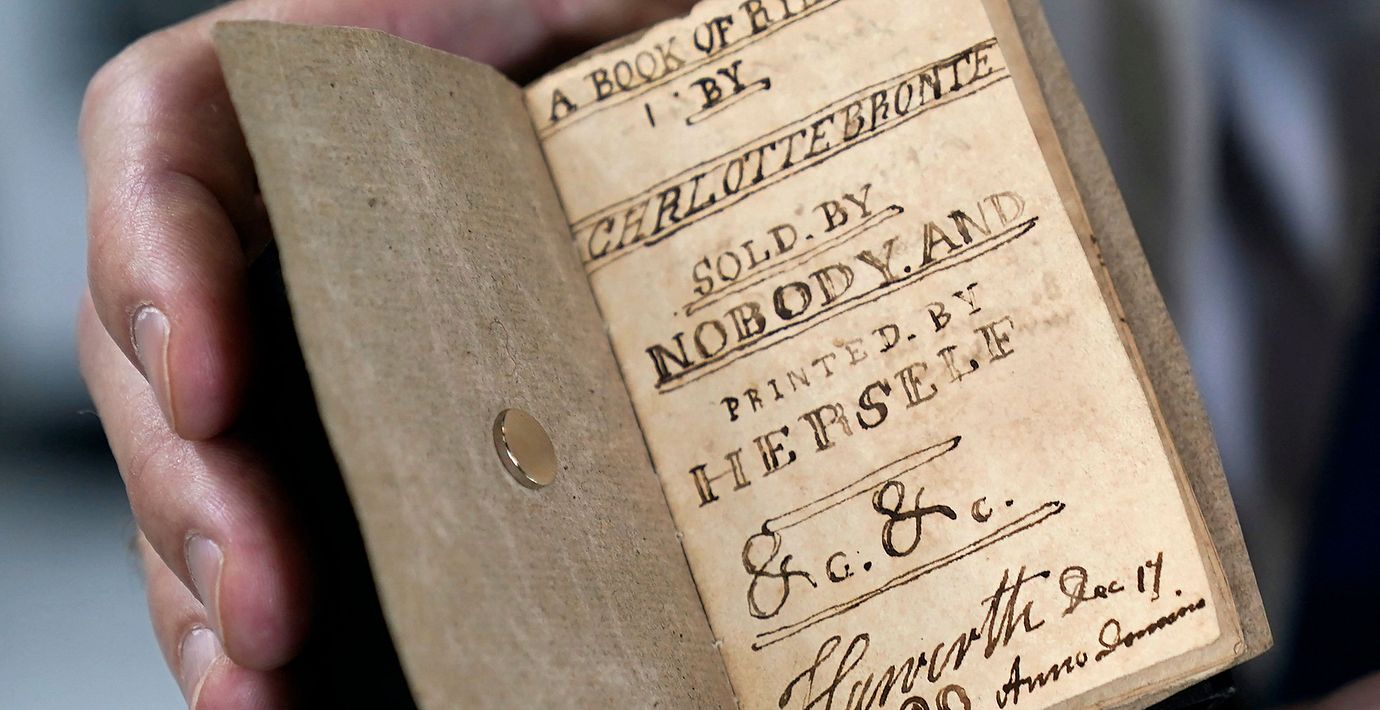 A BOOK OF
BY
CHRLOTTE BRONTE
SOLD. BY
NOBODY. AND
PRINTED. BY
HERSELF
&c. &c.
Haworth Dec 17
Anno Domino